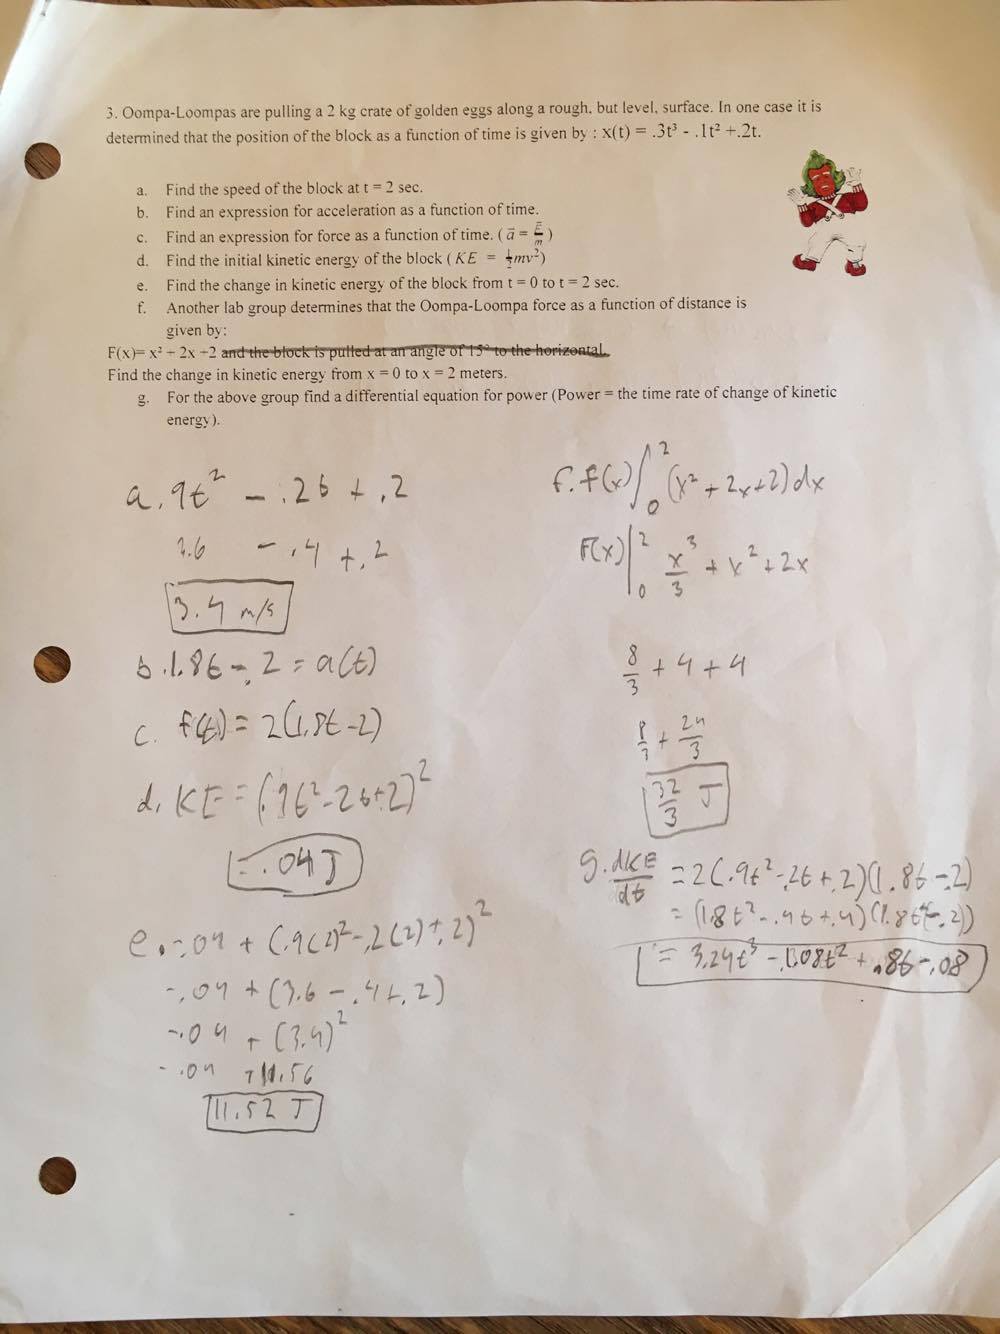 3. Oompa-Loompas are pulling a 2 kg crate of golden eggs along a rough, but level, surface. In one case it is
determined that the position of the block as a function of time is given by : x(t) = .3t³ - .1t² +.2t.
a. Find the speed of the block at t = 2 sec.
b. Find an expression for acceleration as a function of time.
c. Find an expression for force as a function of time. ( a⃗ = F⃗/m )
d. Find the initial kinetic energy of the block ( KE = ½mv²)
e. Find the change in kinetic energy of the block from t = 0 to t = 2 sec.
f. Another lab group determines that the Oompa-Loompa force as a function of distance is
given by:
F(x)= x² + 2x +2 and the block is pulled at an angle of 15° to the horizontal.
Find the change in kinetic energy from x = 0 to x = 2 meters.
g. For the above group find a differential equation for power (Power = the time rate of change of kinetic
energy).
a. .9t² - .2t + .2
3.6 - .4 + .2
3.4 m/s
b. 1.8t - .2 = a(t)
c. f(t) = 2(1.8t - 2)
d. KE = (.9t² - 2t + .2)²
= .04 J
e. -.04 + (.9(2)² - .2(2) + .2)²
-.04 + (3.6 - .4 + .2)
-.04 + (3.4)²
-.04 + 11.56
11.52 J
f. f(x) ∫₀² (x² + 2x + 2) dx
F(x) |₀² x³/3 + x² + 2x
8/3 + 4 + 4
8/3 + 24/3
32/3 J
g. dKE/dt = 2(.9t² - .2t + .2)(1.8t - .2)
= (1.8t² - .4t + .4)(1.8t - .2))
= 3.24t³ - 1.08t² + .8t - .08